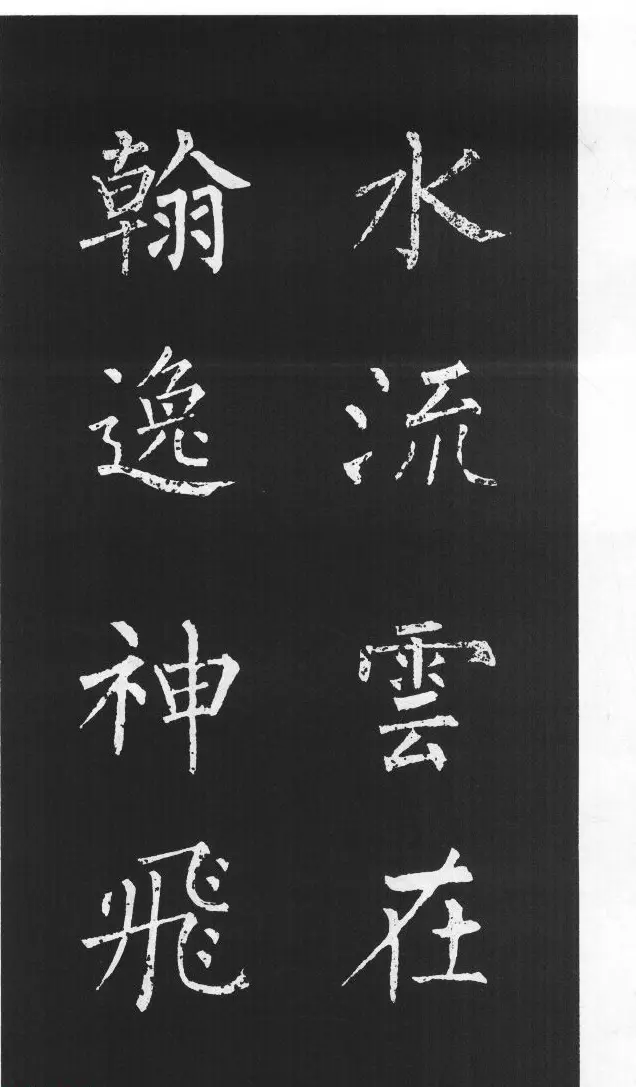 水流雲在
翰逸神飛